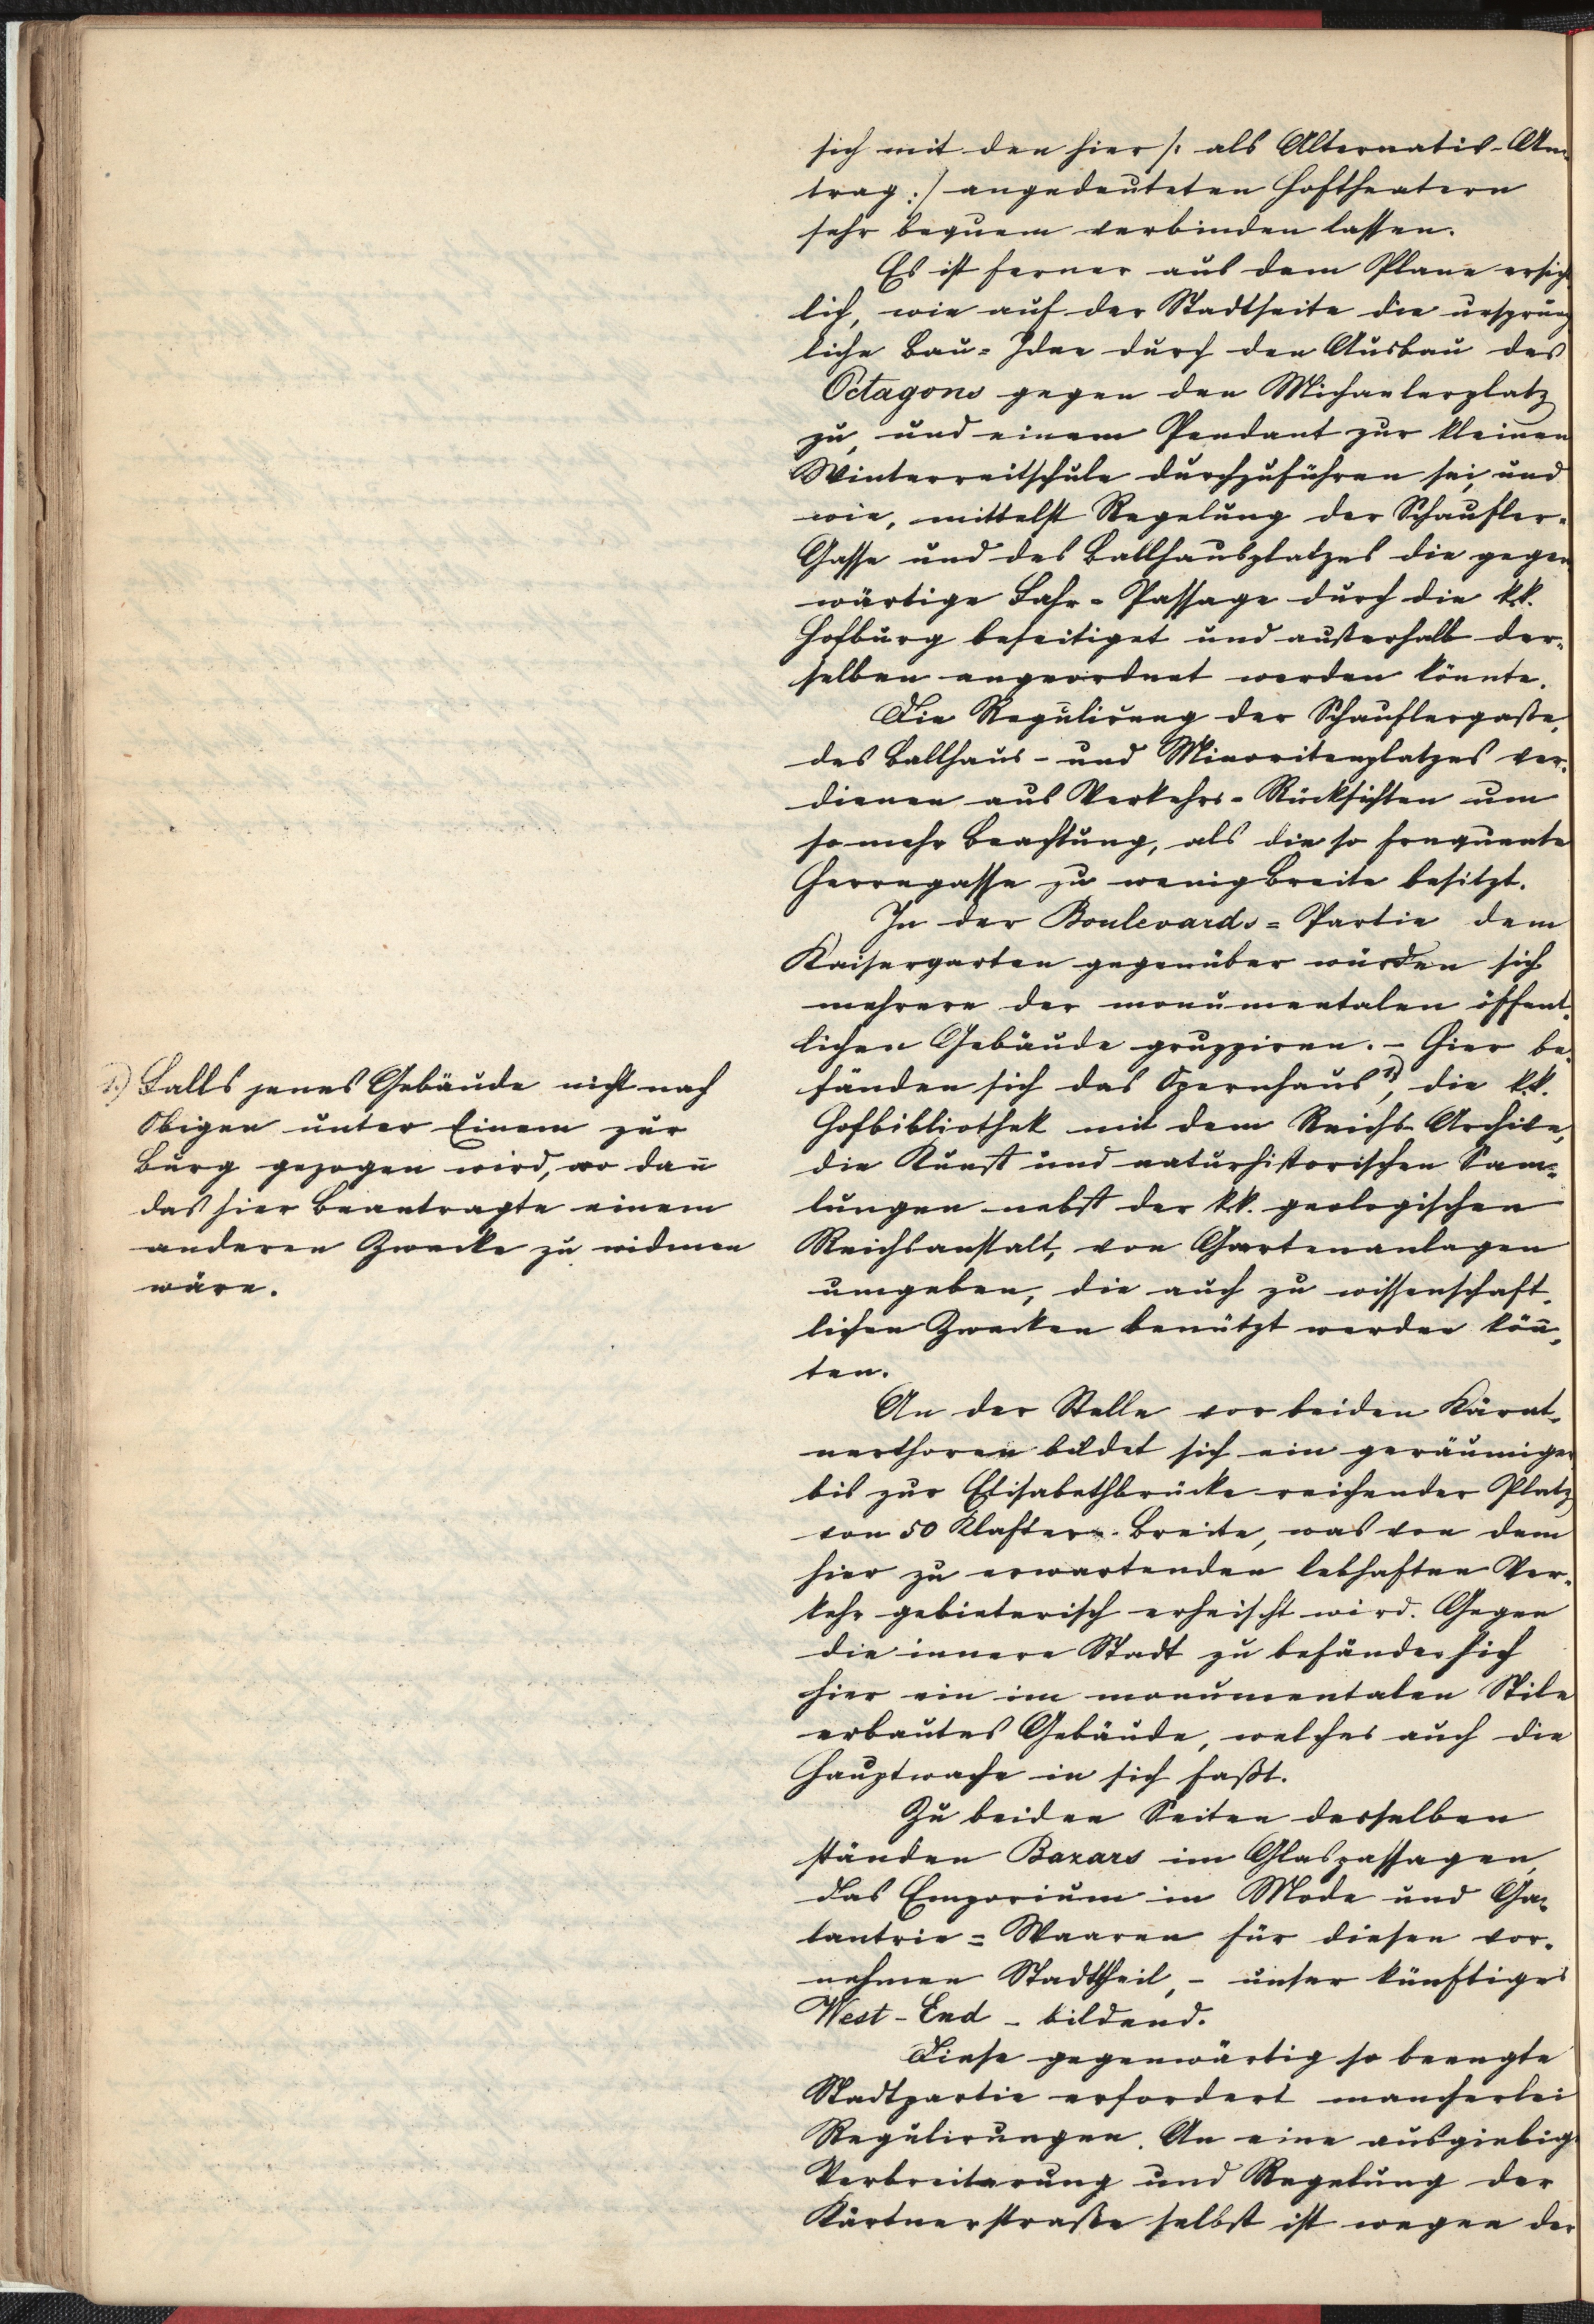 sich mit den hier /: als Alternativ-An-
trag :/ angedeuteten Hoftheatern
sehr bequem verbinden lassen.
Es ist ferner aus dem Plane ersicht
lich, wie auf der Stadtseite die ursprüng
liche Bau-Idee durch den Ausbau des
Octagons gegen den Michaelerplatz
zu, und einem Pendant zur kleinen
Winterreitschule durchzuführen sei, und
wie, mittelst Regelung der Schaufler-
Gasse und des Ballhausplatzes die gegen
wärtige Fahr-Passage durch die k.k.
Hofburg beseitiget und außerhalb der-
selben angeordnet werden könnte.
Die Regulirung der Schauflergaße,
des Ballhaus- und Minoritenplatzes ver-
dienen aus Verkehrs-Rücksichten um
so mehr Beachtung, als die so frequente
Herrngasse zu wenig Breite besitzt.
In der Boulevards-Partie dem
Kaisergarten gegenüber würden sich
mehrere der monumentalen öffent-
lichen Gebäude gruppiren. – Hier be-
fänden sich das Opernhaus 1.), die k.k.
Hofbibliothek mit dem Reichs-Archive,
die Kunst und naturhistorischen Sam̄-
lungen nebst der k.k. geologischen
Reichsanstalt, von Gartenanlagen
umgeben, die auch zu wissenschaft-
lichen Zwecken benützt werden kön̄-
ten.
1.) Falls jenes Gebäude nicht nach
Obigen unter Einem zur
Burg gezogen wird, wo dan̄
das hier Beantragte einem
anderen Zwecke zu widmen
wäre.
An der Stelle vor beiden Kärnt-
nerthoren bildet sich ein geräumiger
bis zur Elisabethbrücke reichender Platz
von 50 Klaftern Breite, was von dem
hier zu erwartenden lebhaften Ver-
kehr gebieterisch erheischt wird. Gegen
die innere Stadt zu befände sich
hier ein im monumentalen Stile
erbautes Gebäude, welches auch die
Hauptwache in sich faßt.
Zu beiden Seiten desselben
ständen Bazars im Glaspassagen,
das Emporium in Mode und Ga-
lantrie-Waaren für diesen vor-
nehmen Stadttheil, – unser künftiges
West-End – bildend.
Diese gegenwärtig so beengte
Stadtpartie erfordert mancherlei
Regulirungen. An eine ausgiebige
Verbreiterung und Regelung der
Kärtnerstraße selbst ist wegen der